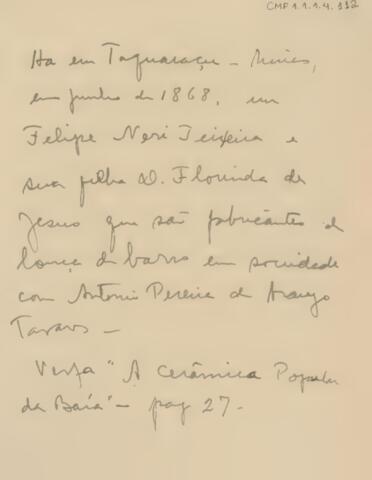 CMF 1.1.1.4.112
Ha em Taquaraçu - Minas,
em junho de 1868, um
Felipe Neri Teixeira e
sua filha D. Florinda de
Jesus que são fabricantes de
louça de barro em sociedade
com Antonio Pereira de Araujo
Tavares -
Veja "A cerâmica Popular
da Baía" - pag 27 -